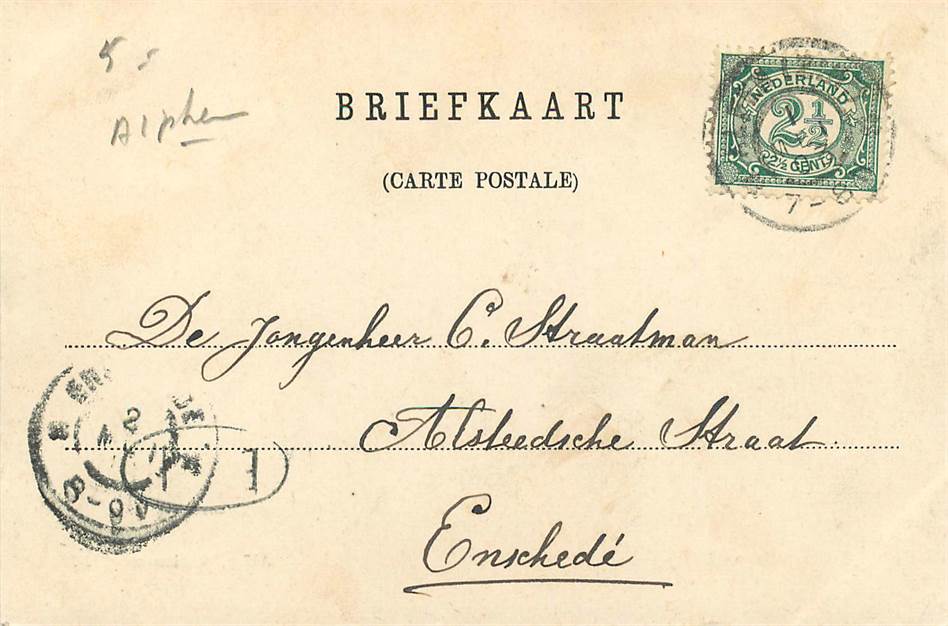 5 s
Alphen
BRIEFKAART
(CARTE POSTALE)
NEDERLAND
2½
2½ CENT
7-8
De Jongenheer C. Straatman
Alsteedsche Straat
Enschedé
8-9V
1